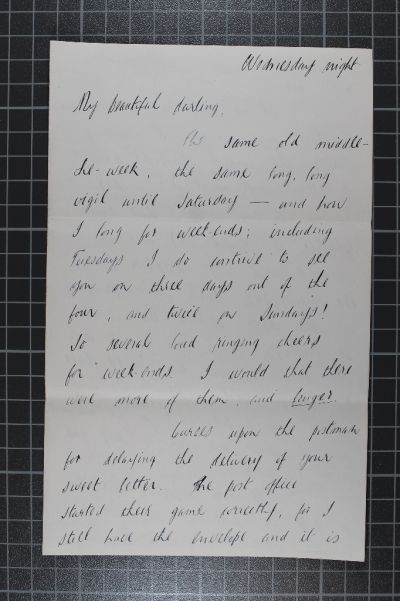 Wednesday night
My beautiful darling,
The same old middle-
the-week, the same long, long
vigil until Saturday — and how
I long for week-ends; including
Tuesdays I do contrive to see
you on three days out of the
four, and twice on Sundays!
So several loud ringing cheers
for week-ends. I would that there
were more of them, and longer.
Curses upon the postman
for delaying the delivery of your
sweet letter. The post office
started their game correctly, for I
still have the envelope and it is